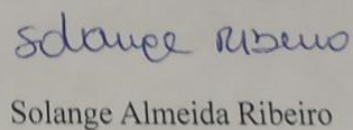 Solange Ribeiro
Solange Almeida Ribeiro